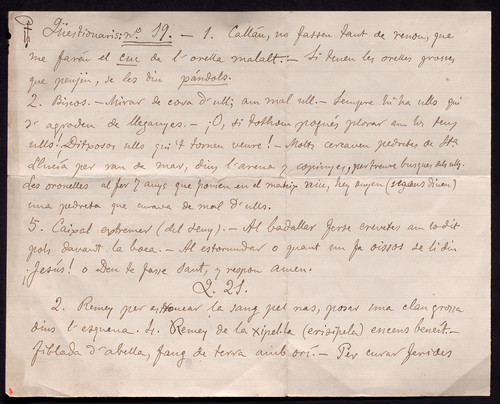 Qüestionaris: nº. 19. — 1. Callau, no fassen tant de renou, que
me faràn el cuc de l'orella malalt. — Si tenen les orelles grosses
que penjin, se les diu pándols.
2. Biscos. — Mirar de cova d'ull; am mal ull. — Sempre hi ha ulls qui
s'agraden de lleganyes. — ¡O, si tothom pogués plorar am los teus
ulls! ¡Ditxosos ulls qui't tornen veure! — Molts cercaven pedretes de Sta
Llucía per ran de mar, dins l'arena y copinyes, per treure busques dels ulls.
Les oronelles al fer 7 anys que ponien en el mateix niu, hey duyen (segons diuen)
una pedreta que curava de mal d'ulls.
5. Caixal estremer (del seny). — Al badallar ferse creuetes am lo dit
gros davant la boca. — Al estornudar o quant un fa ois se li diu
¡Jesús! o Deu te fasse sant, y respon amen.
Q. 21.
2. Remey per estroncar la sang pel nas, posar una clau grossa
dins l'esquena. 4. Remey de la xipel·la (erisipela) encens beneit. —
Fiblada d'abella, fang de terra amb orí. — Per curar ferides